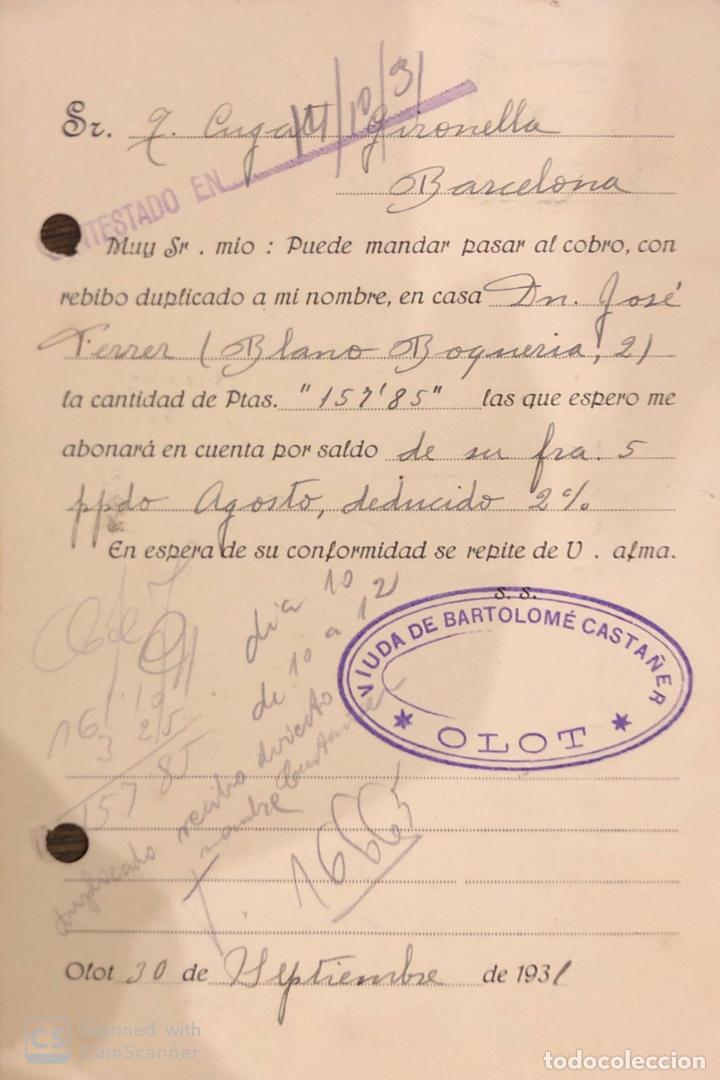 14/10/31
Sr. Cugat Gironella
CONTESTADO EN
Barcelona
Muy Sr. mio: Puede mandar pasar al cobro, con
rebibo duplicado a mi nombre, en casa Dn. José
Ferrer (Blano Boqueria, 2)
la cantidad de Ptas. "157'85" las que espero me
abonará en cuenta por saldo de su fra. 5
ppdo Agosto, deducido 2%
En espera de su conformidad se repite de V. afma.
s. s.
VIUDA DE BARTOLOMÉ CASTAÑER
* OLOT *
dia 10
de 10 a 12
3 25
157 85
duplicado recibo directo
nombre Castañer
1665
Olot 30 de Septiembre de 1931
CS Scanned with
CamScanner
todocoleccion